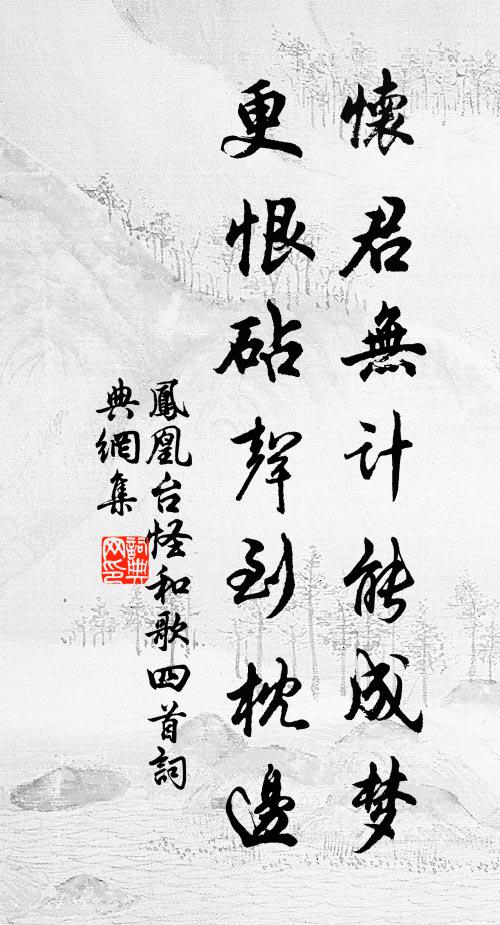 懷君無計能成梦
更恨砧聲到枕邊
鳳凰台怪和歌四首詞
典網集
詞典网印